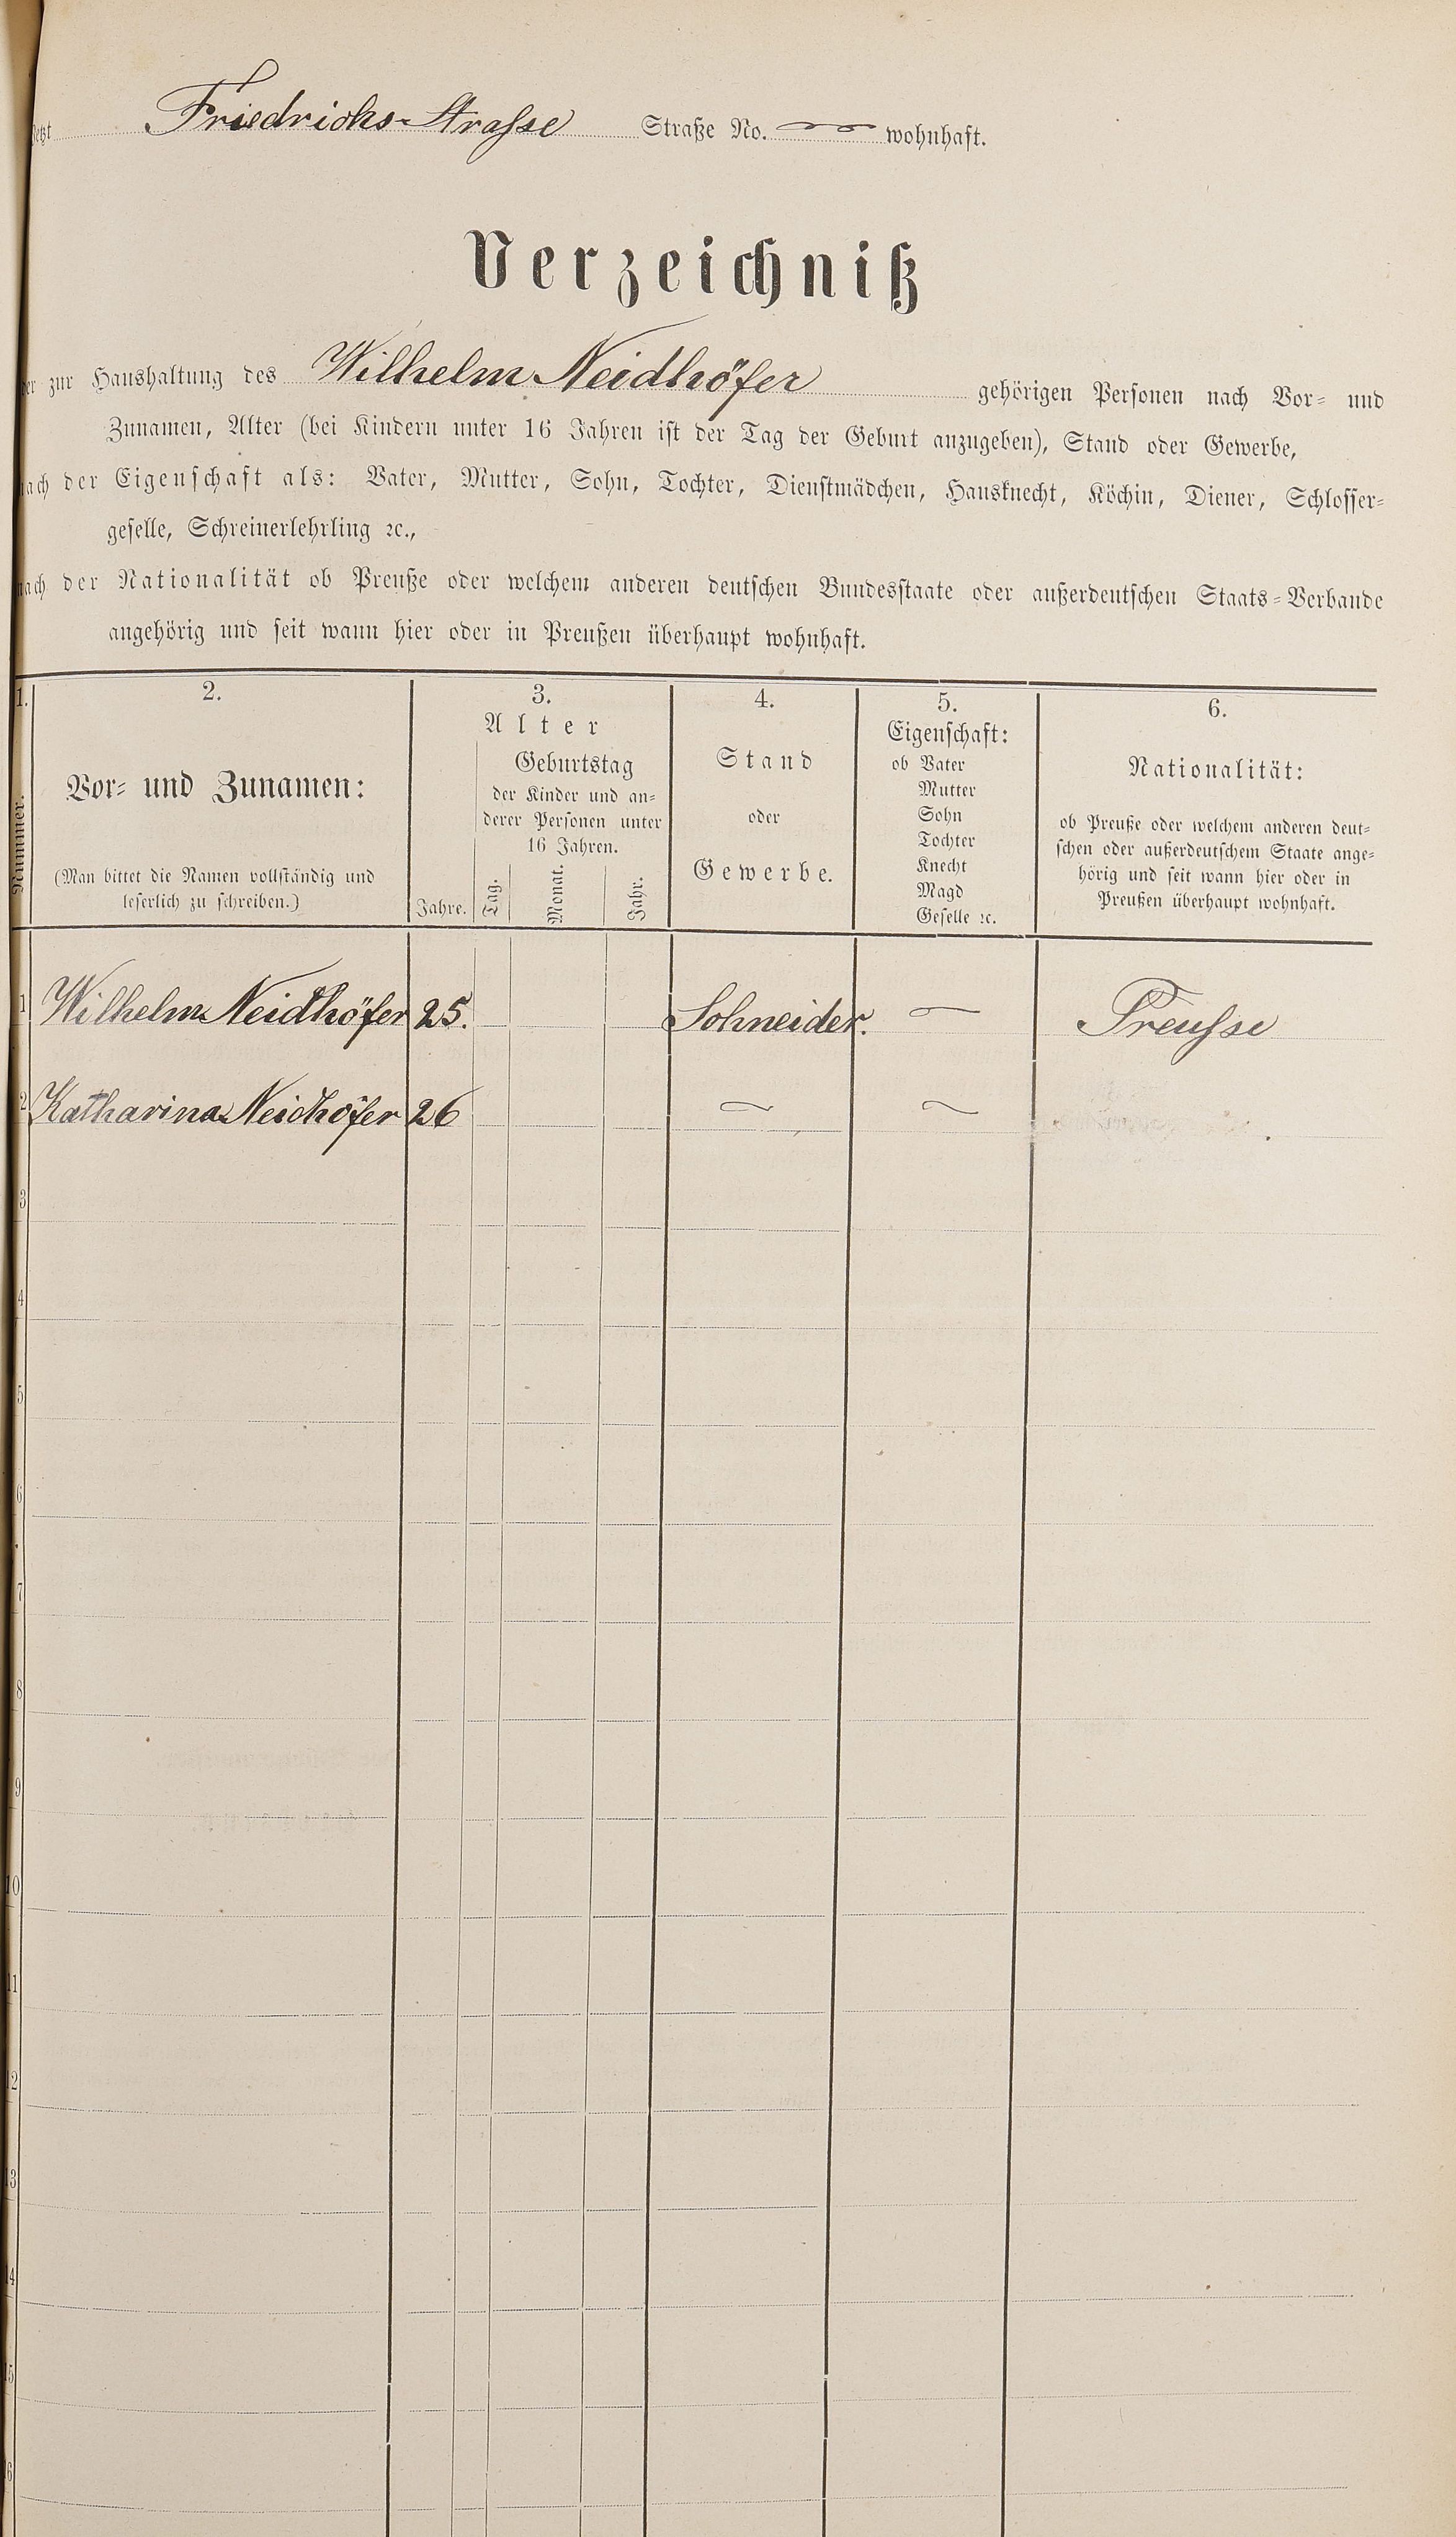 jetzt Friedrichs-Strasse Straße No. — wohnhaft.
Verzeichniß
der zur Haushaltung des Wilhelm Neidhöfer gehörigen Personen nach Vor- und
Zunamen, Alter (bei Kindern unter 16 Jahren ist der Tag der Geburt anzugeben), Stand oder Gewerbe,
nach der Eigenschaft als: Vater, Mutter, Sohn, Tochter, Dienstmädchen, Hausknecht, Köchin, Diener, Schlosser-
geselle, Schreinerlehrling ꝛc.,
nach der Nationalität ob Preuße oder welchem anderen deutschen Bundesstaate oder außerdeutschen Staats-Verbande
angehörig und seit wann hier oder in Preußen überhaupt wohnhaft.
1. 2. 3. 4. 5. 6.
Nummer.
Vor- und Zunamen:
(Man bittet die Namen vollständig und
leserlich zu schreiben.)
Alter
Jahre.
Geburtstag
der Kinder und an-
derer Personen unter
16 Jahren.
Tag. Monat. Jahr.
Stand
oder
Gewerbe.
Eigenschaft:
ob Vater
Mutter
Sohn
Tochter
Knecht
Magd
Geselle ꝛc.
Nationalität:
ob Preuße oder welchem anderen deut-
schen oder außerdeutschem Staate ange-
hörig und seit wann hier oder in
Preußen überhaupt wohnhaft.
1 Wilhelm Neidhöfer 25. Schneider. — Preusse
2 Katharina Neidhöfer 26 — —
3
4
5
6
7
8
9
10
11
12
13
14
15
16